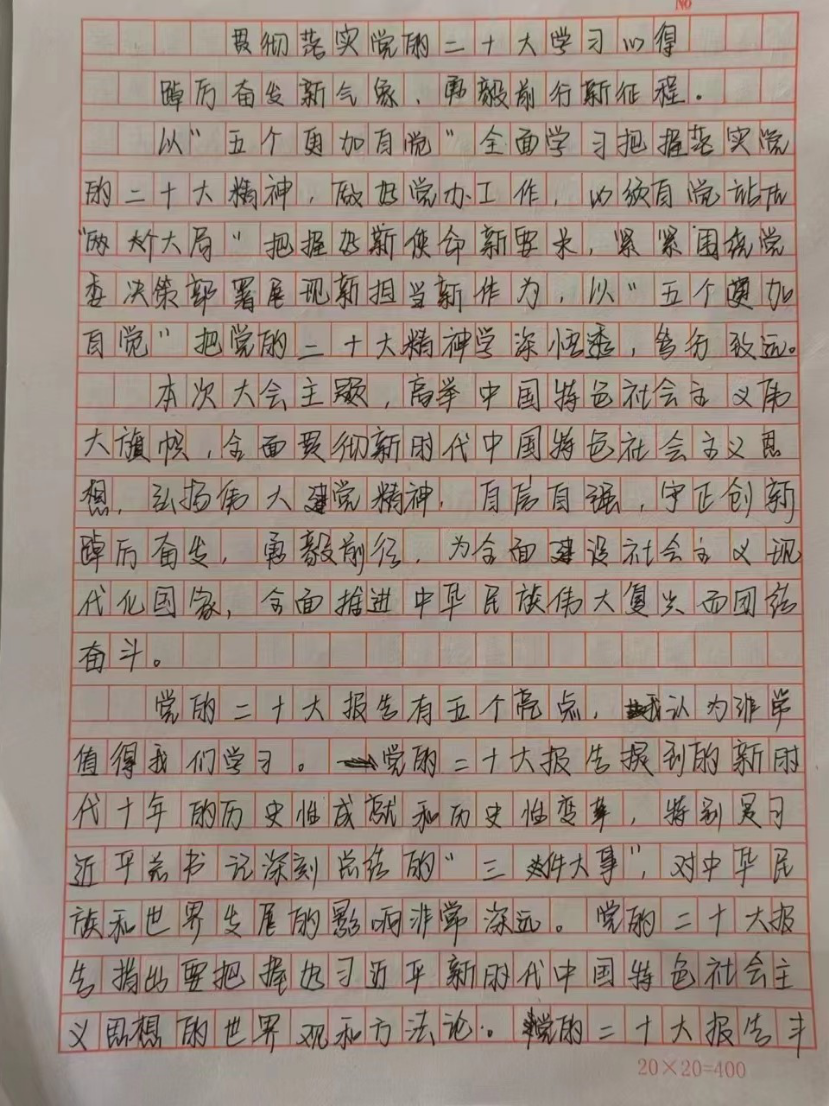 No
贯彻落实党的二十大学习心得
踔厉奋发新气象、勇毅前行新征程.
以“五个更加自觉”全面学习把握落实党
的二十大精神,做好党办工作,必须自觉站在
“两个大局”把握好新使命新要求,紧紧围绕党
委决策部署展现新担当新作为,以“五个更加
自觉”把党的二十大精神学深悟透,笃行致远。
本次大会主题,高举中国特色社会主义伟
大旗帜,全面贯彻新时代中国特色社会主义思
想,弘扬伟大建党精神,自信自强,守正创新
踔厉奋发,勇毅前行,为全面建设社会主义现
代化国家,全面推进中华民族伟大复兴而团结
奋斗。
党的二十大报告有五个亮点,我认为非常
值得我们学习。党的二十大报告提到的新时
代十年的历史性成就和历史性变革,特别是习
近平总书记深刻总结的“三件大事”,对中华民
族和世界发展的影响非常深远。党的二十大报
告指出要把握好习近平新时代中国特色社会主
义思想的世界观和方法论。党的二十大报告斗
20×20=400